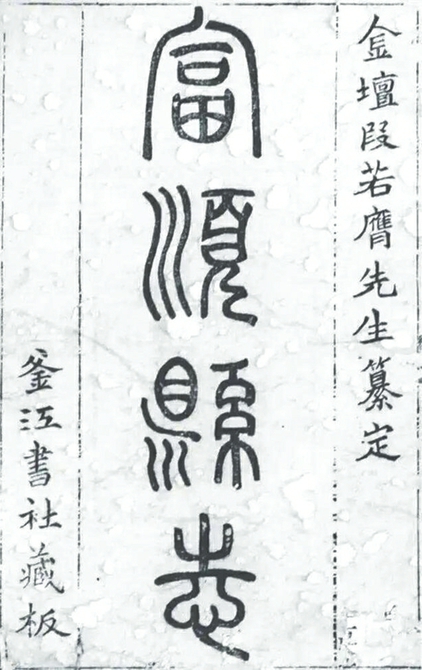 金壇段若膺先生纂定
富順縣志
釜江書社藏板